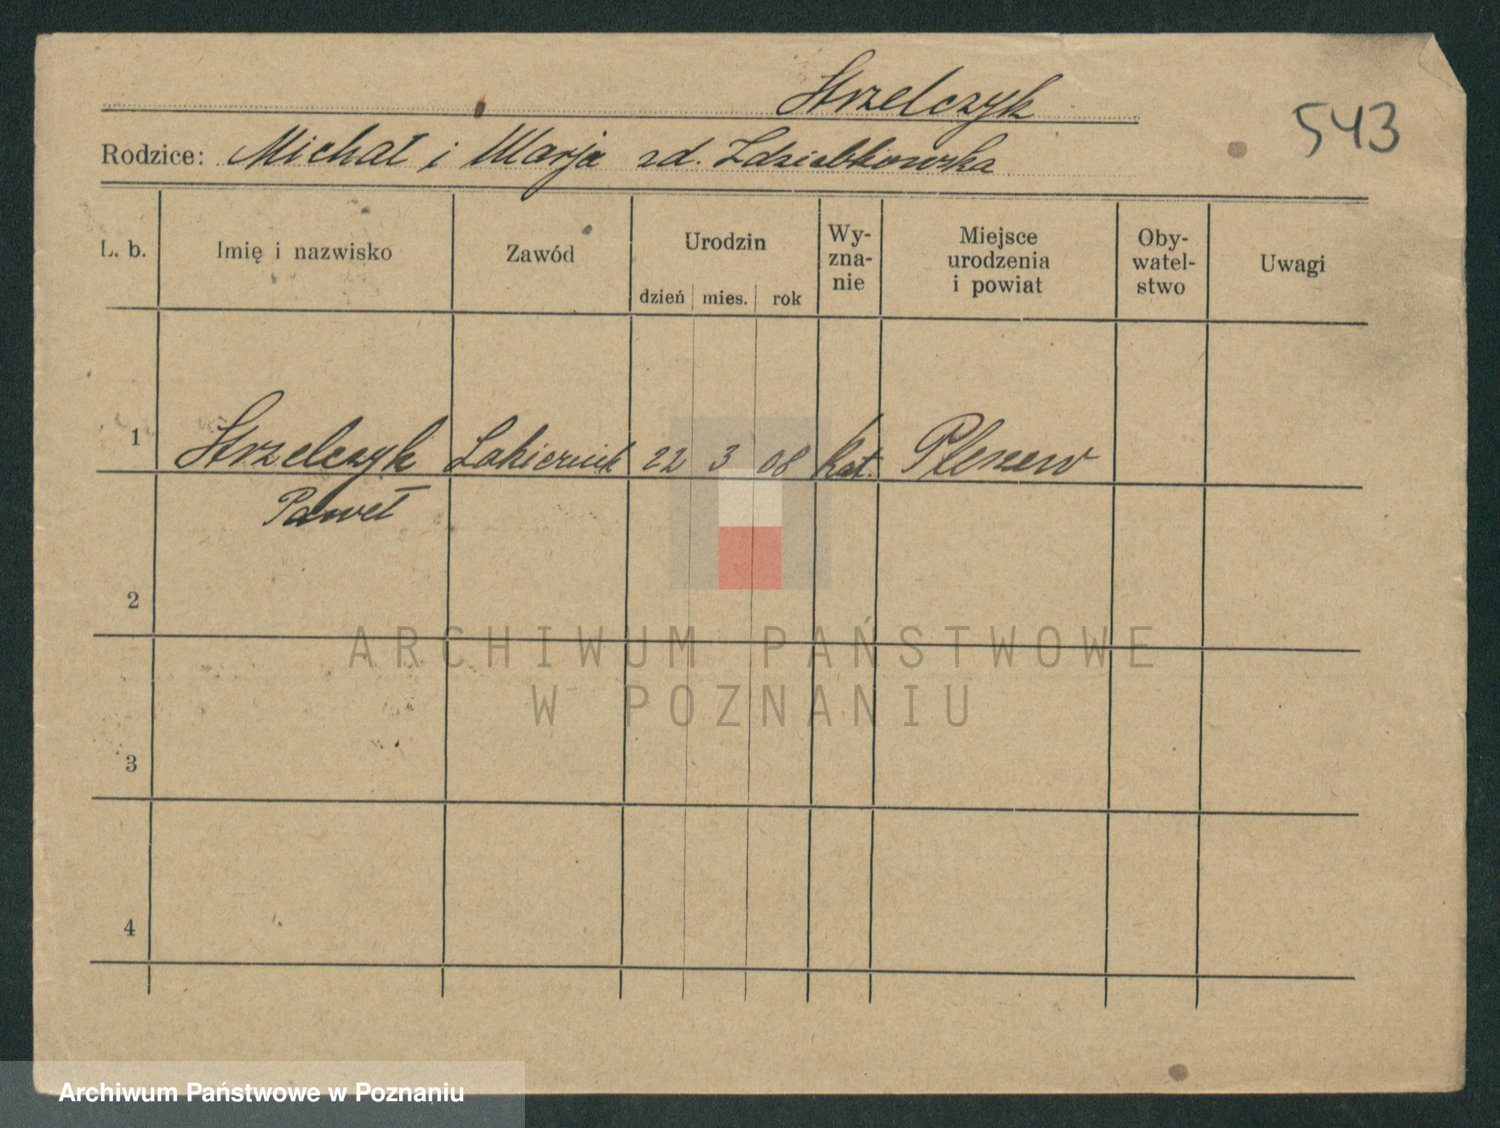 Strzelczyk
543
Rodzice: Michał i Marja zd. Zdziabkowska
L. b. Imię i nazwisko Zawód Urodzin dzień mies. rok Wy-zna-nie Miejsce urodzenia i powiat Oby-watel-stwo Uwagi
1 Strzelczyk Lakiernik 22 3 08 kat. Pleszew
Paweł
2
ARCHIWUM PAŃSTWOWE
W POZNANIU
3
4
Archiwum Państwowe w Poznaniu